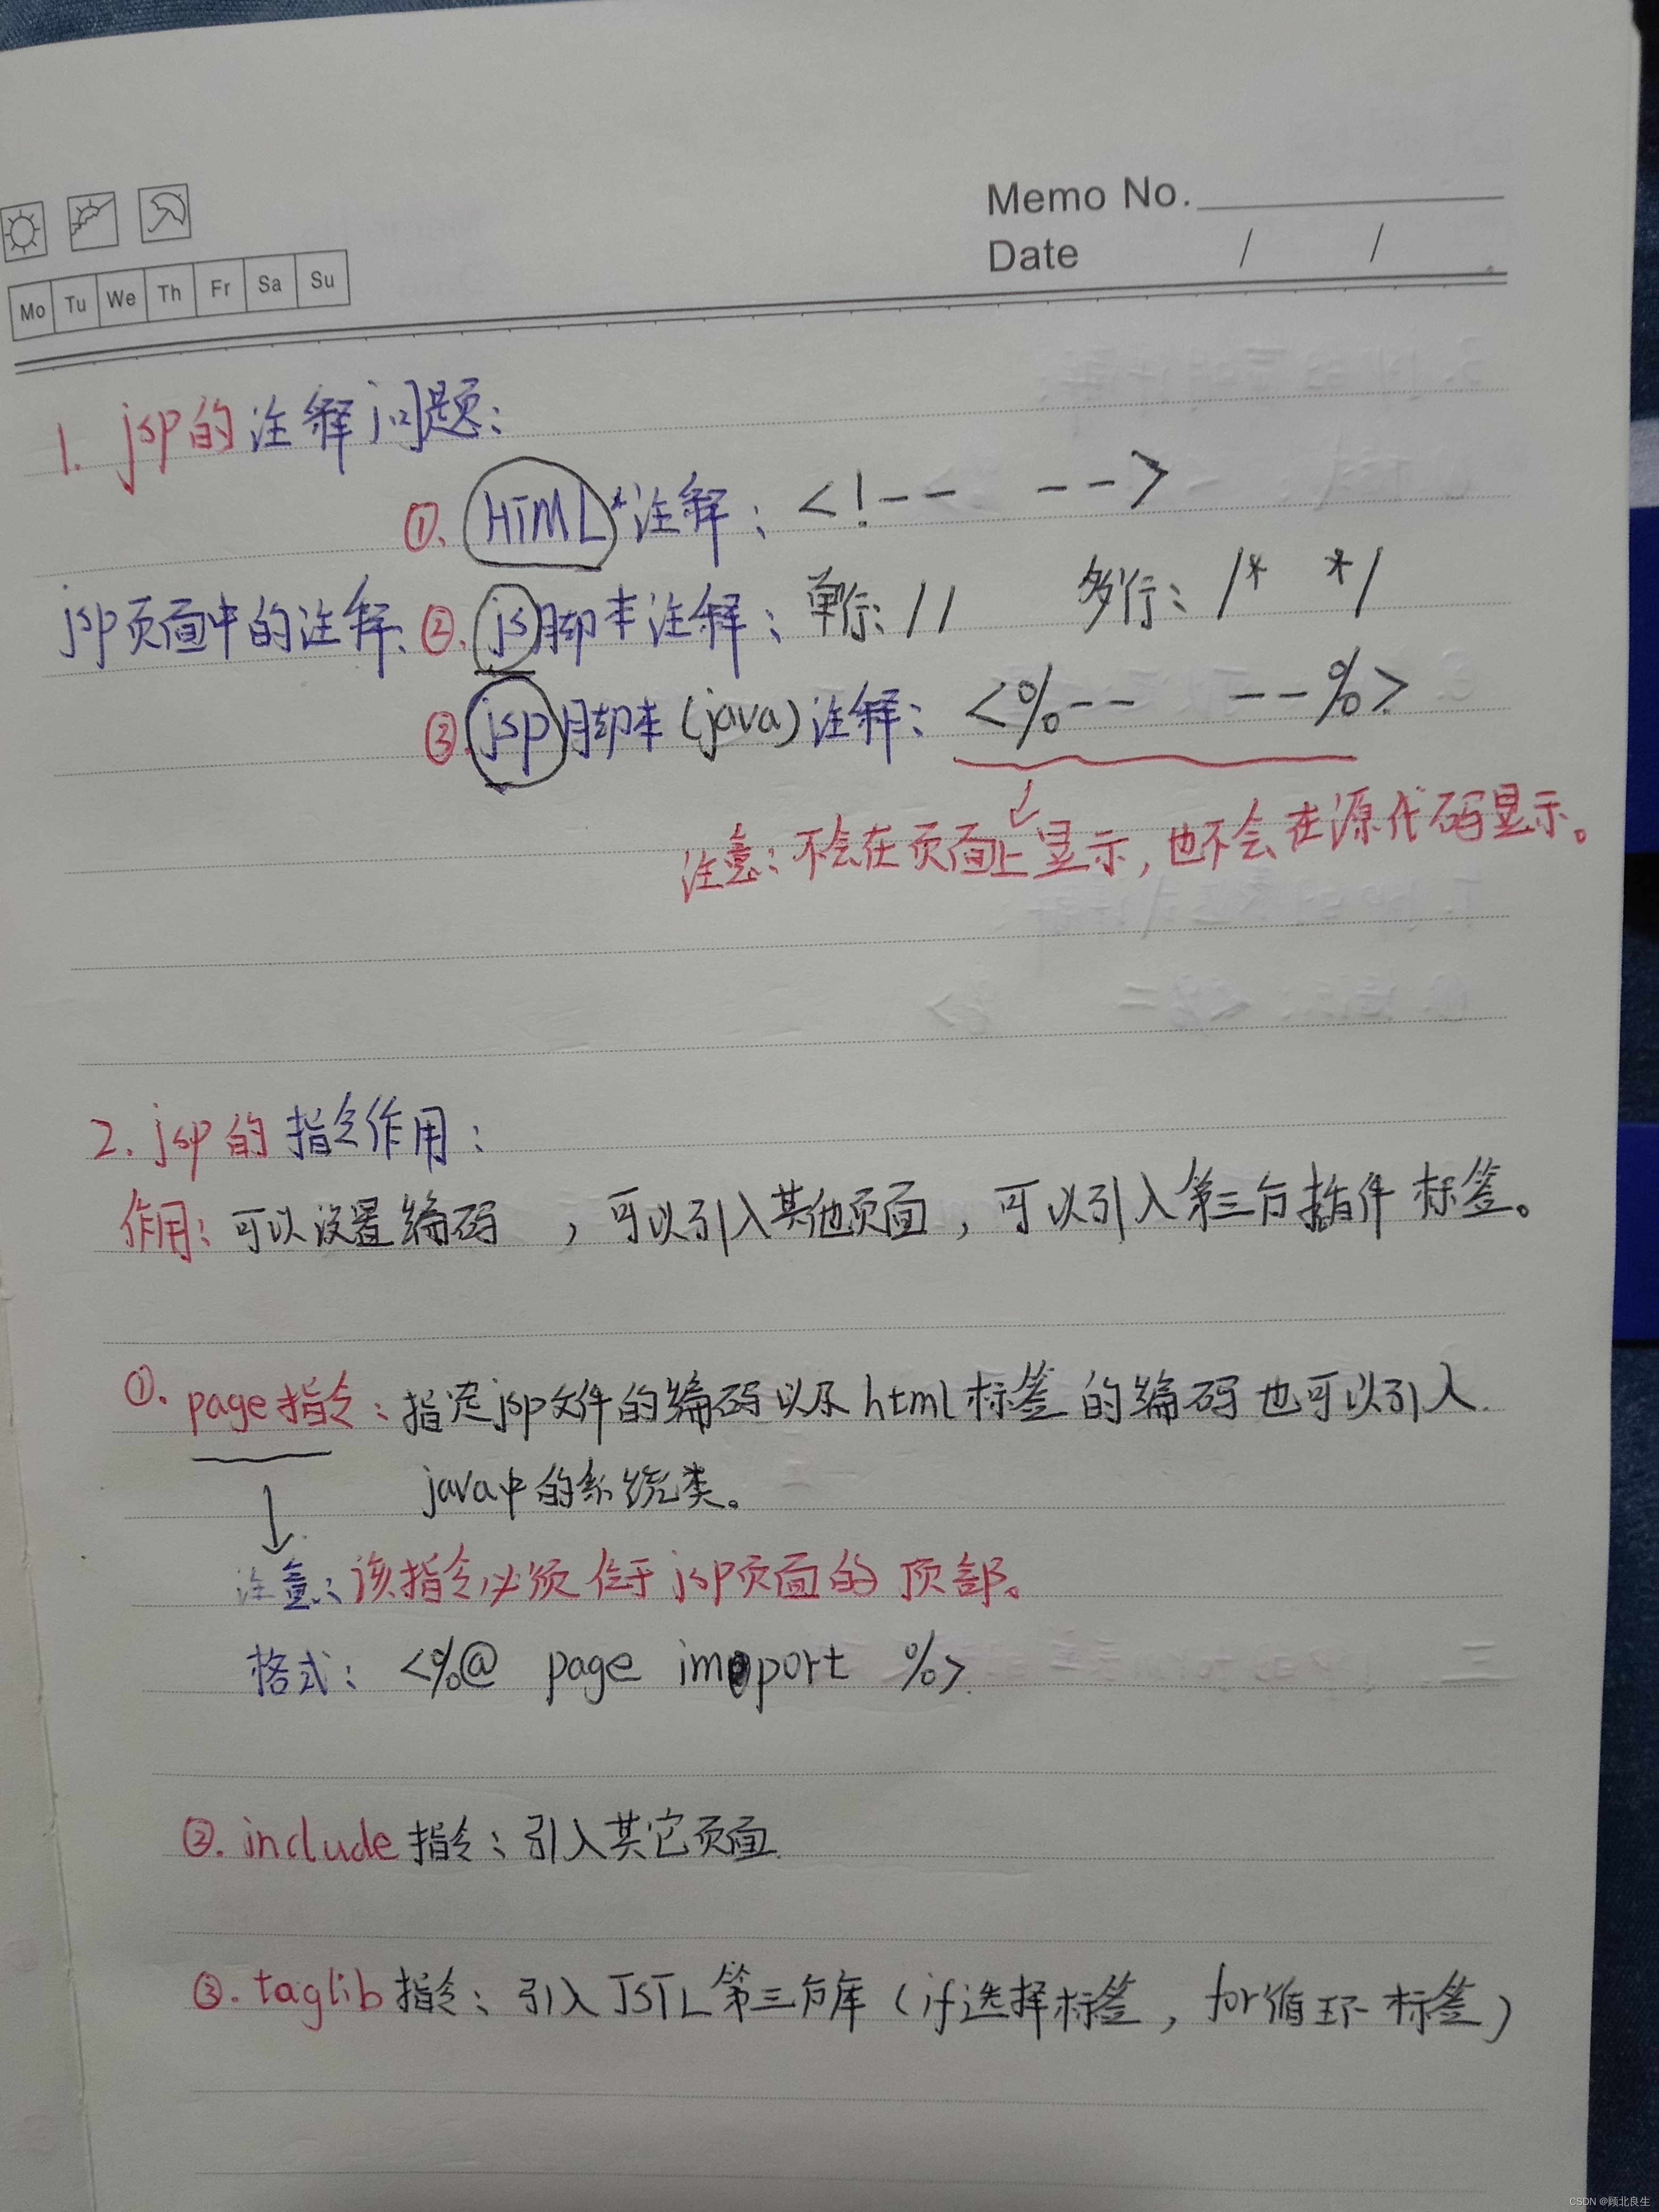 Memo No.
Date / /
Mo Tu We Th Fr Sa Su
1. jsp的注释问题:
①. HTML注释: <!-- -->
jsp页面中的注释. ②. js脚本注释: 单行: // 多行: /* */
③. jsp脚本(java)注释: <%-- --%>
注意: 不会在页面上显示, 也不会在源代码显示。
2. jsp的指令作用:
作用: 可以设置编码 , 可以引入其他页面, 可以引入第三方插件 标签。
①. page指令: 指定jsp文件的编码以及html标签的编码也可以引入.
java中的系统类。
注意: 该指令必须位于jsp页面的顶部。
格式: <%@ page import %>
②. include指令: 引入其它页面.
③. taglib指令: 引入JSTL第三方库 (if选择标签, for循环标签)
CSDN @顾北良生